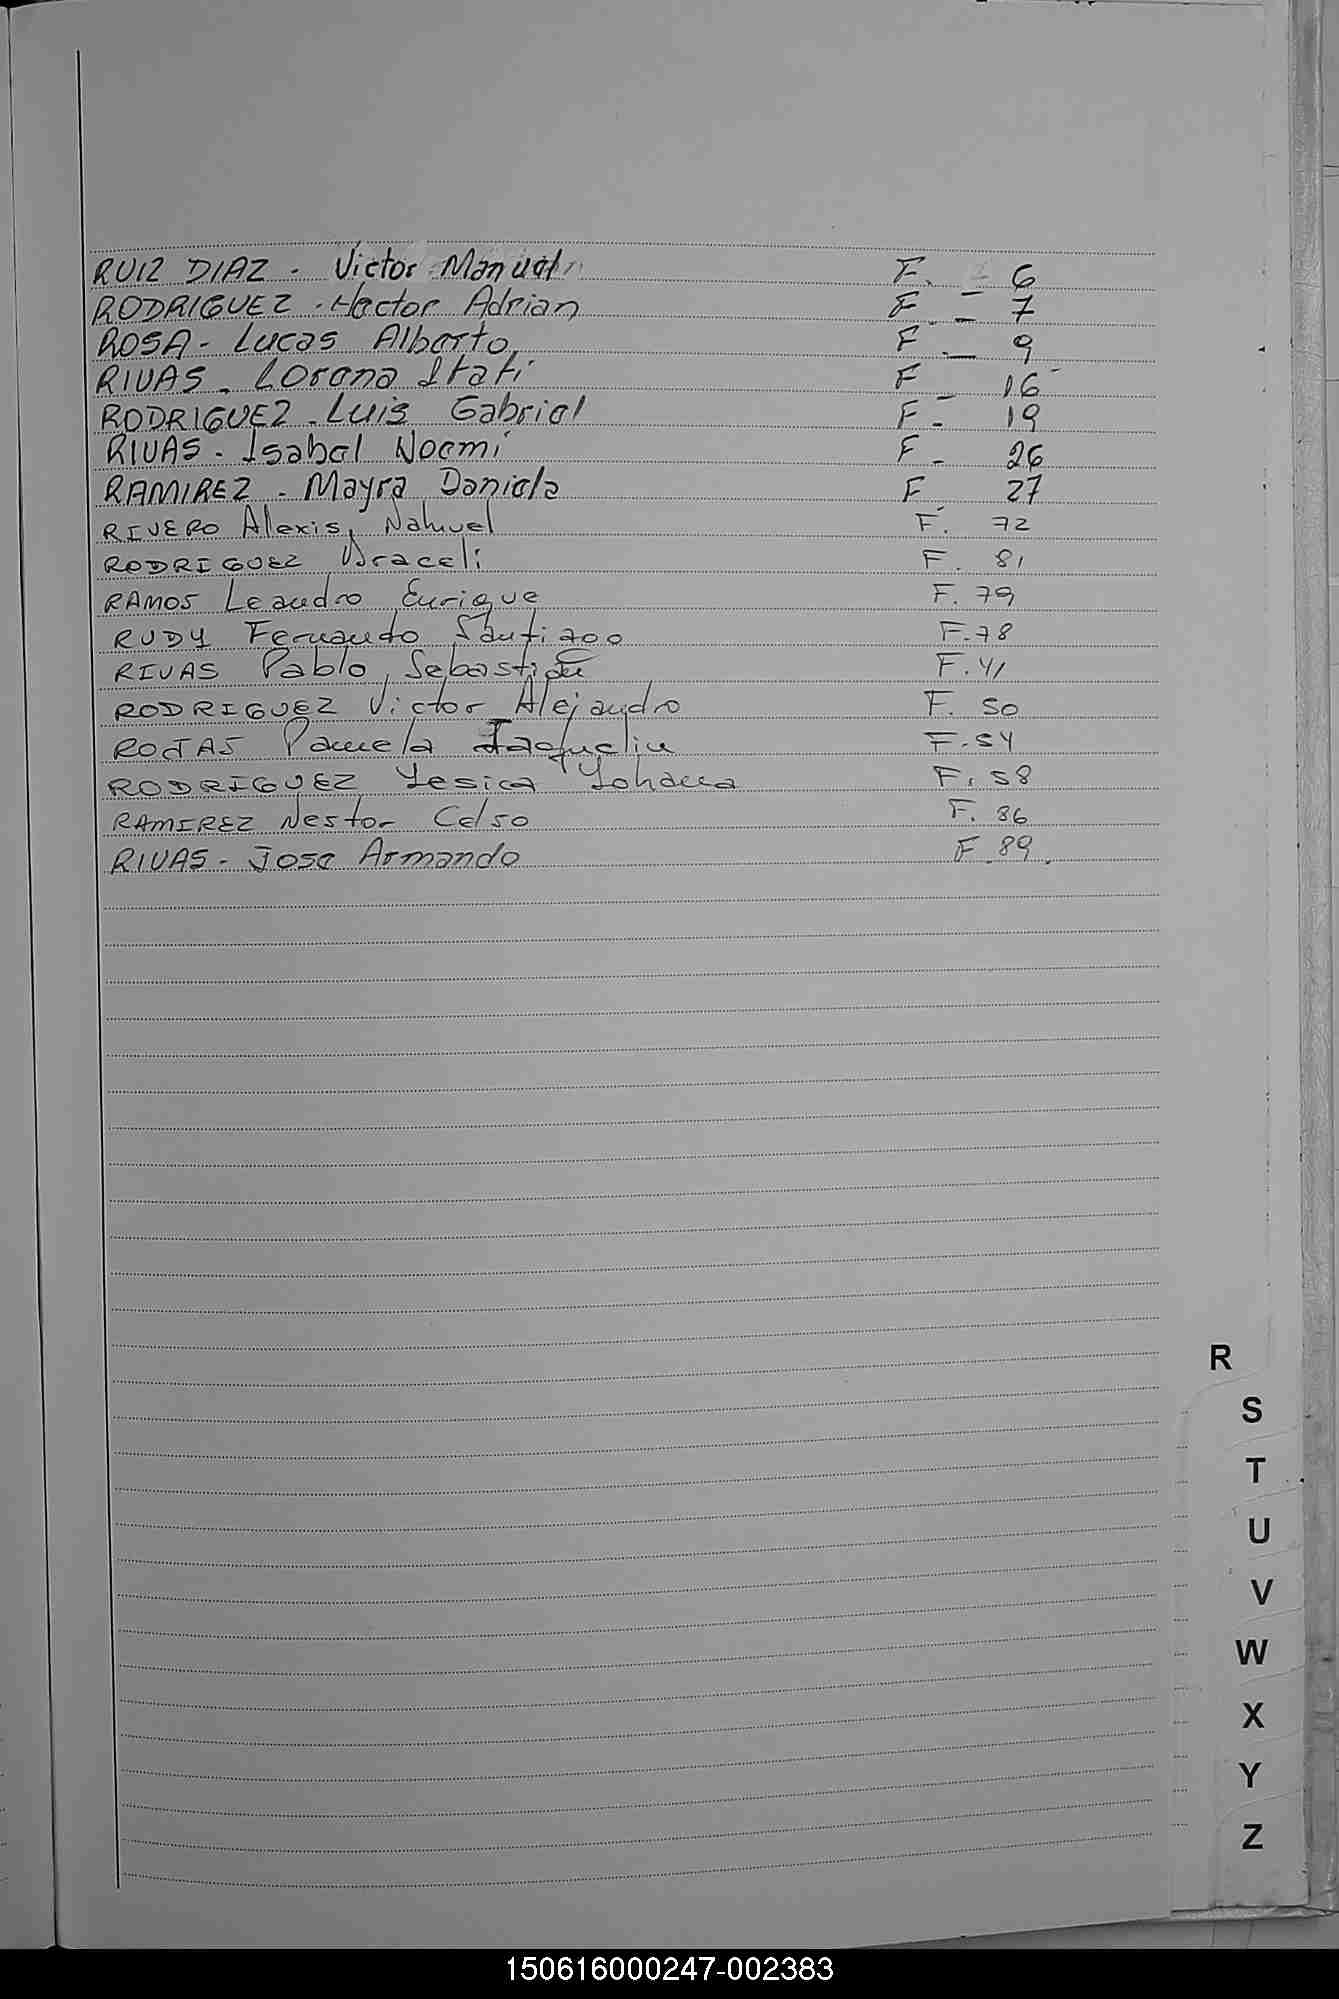 RUIZ DIAZ. Victor Manuel F. 6
RODRIGUEZ. Hector Adrian F. - 7
ROSA - Lucas Alberto. F. - 9
RIVAS. Lorena Itati F - 16
RODRIGUEZ. Luis Gabriel F - 19
RIVAS - Isabel Noemi F - 26
RAMIREZ - Mayra Daniela F 27
RIVERO Alexis Nahuel F. 72
RODRIGUEZ Araceli F. 81
RAMOS Leandro Enrique F. 79
RUDY Fernando Santiago F. 78
RIVAS Pablo Sebastian F. 41
RODRIGUEZ Victor Alejandro F. 50
ROJAS Pamela Jaquelin F. 54
RODRIGUEZ Yesica Yohana F. 58
RAMIREZ Nestor Celso F. 86
RIVAS - Jose Armando F. 89.
R
S
T
U
V
W
X
Y
Z
150616000247-002383